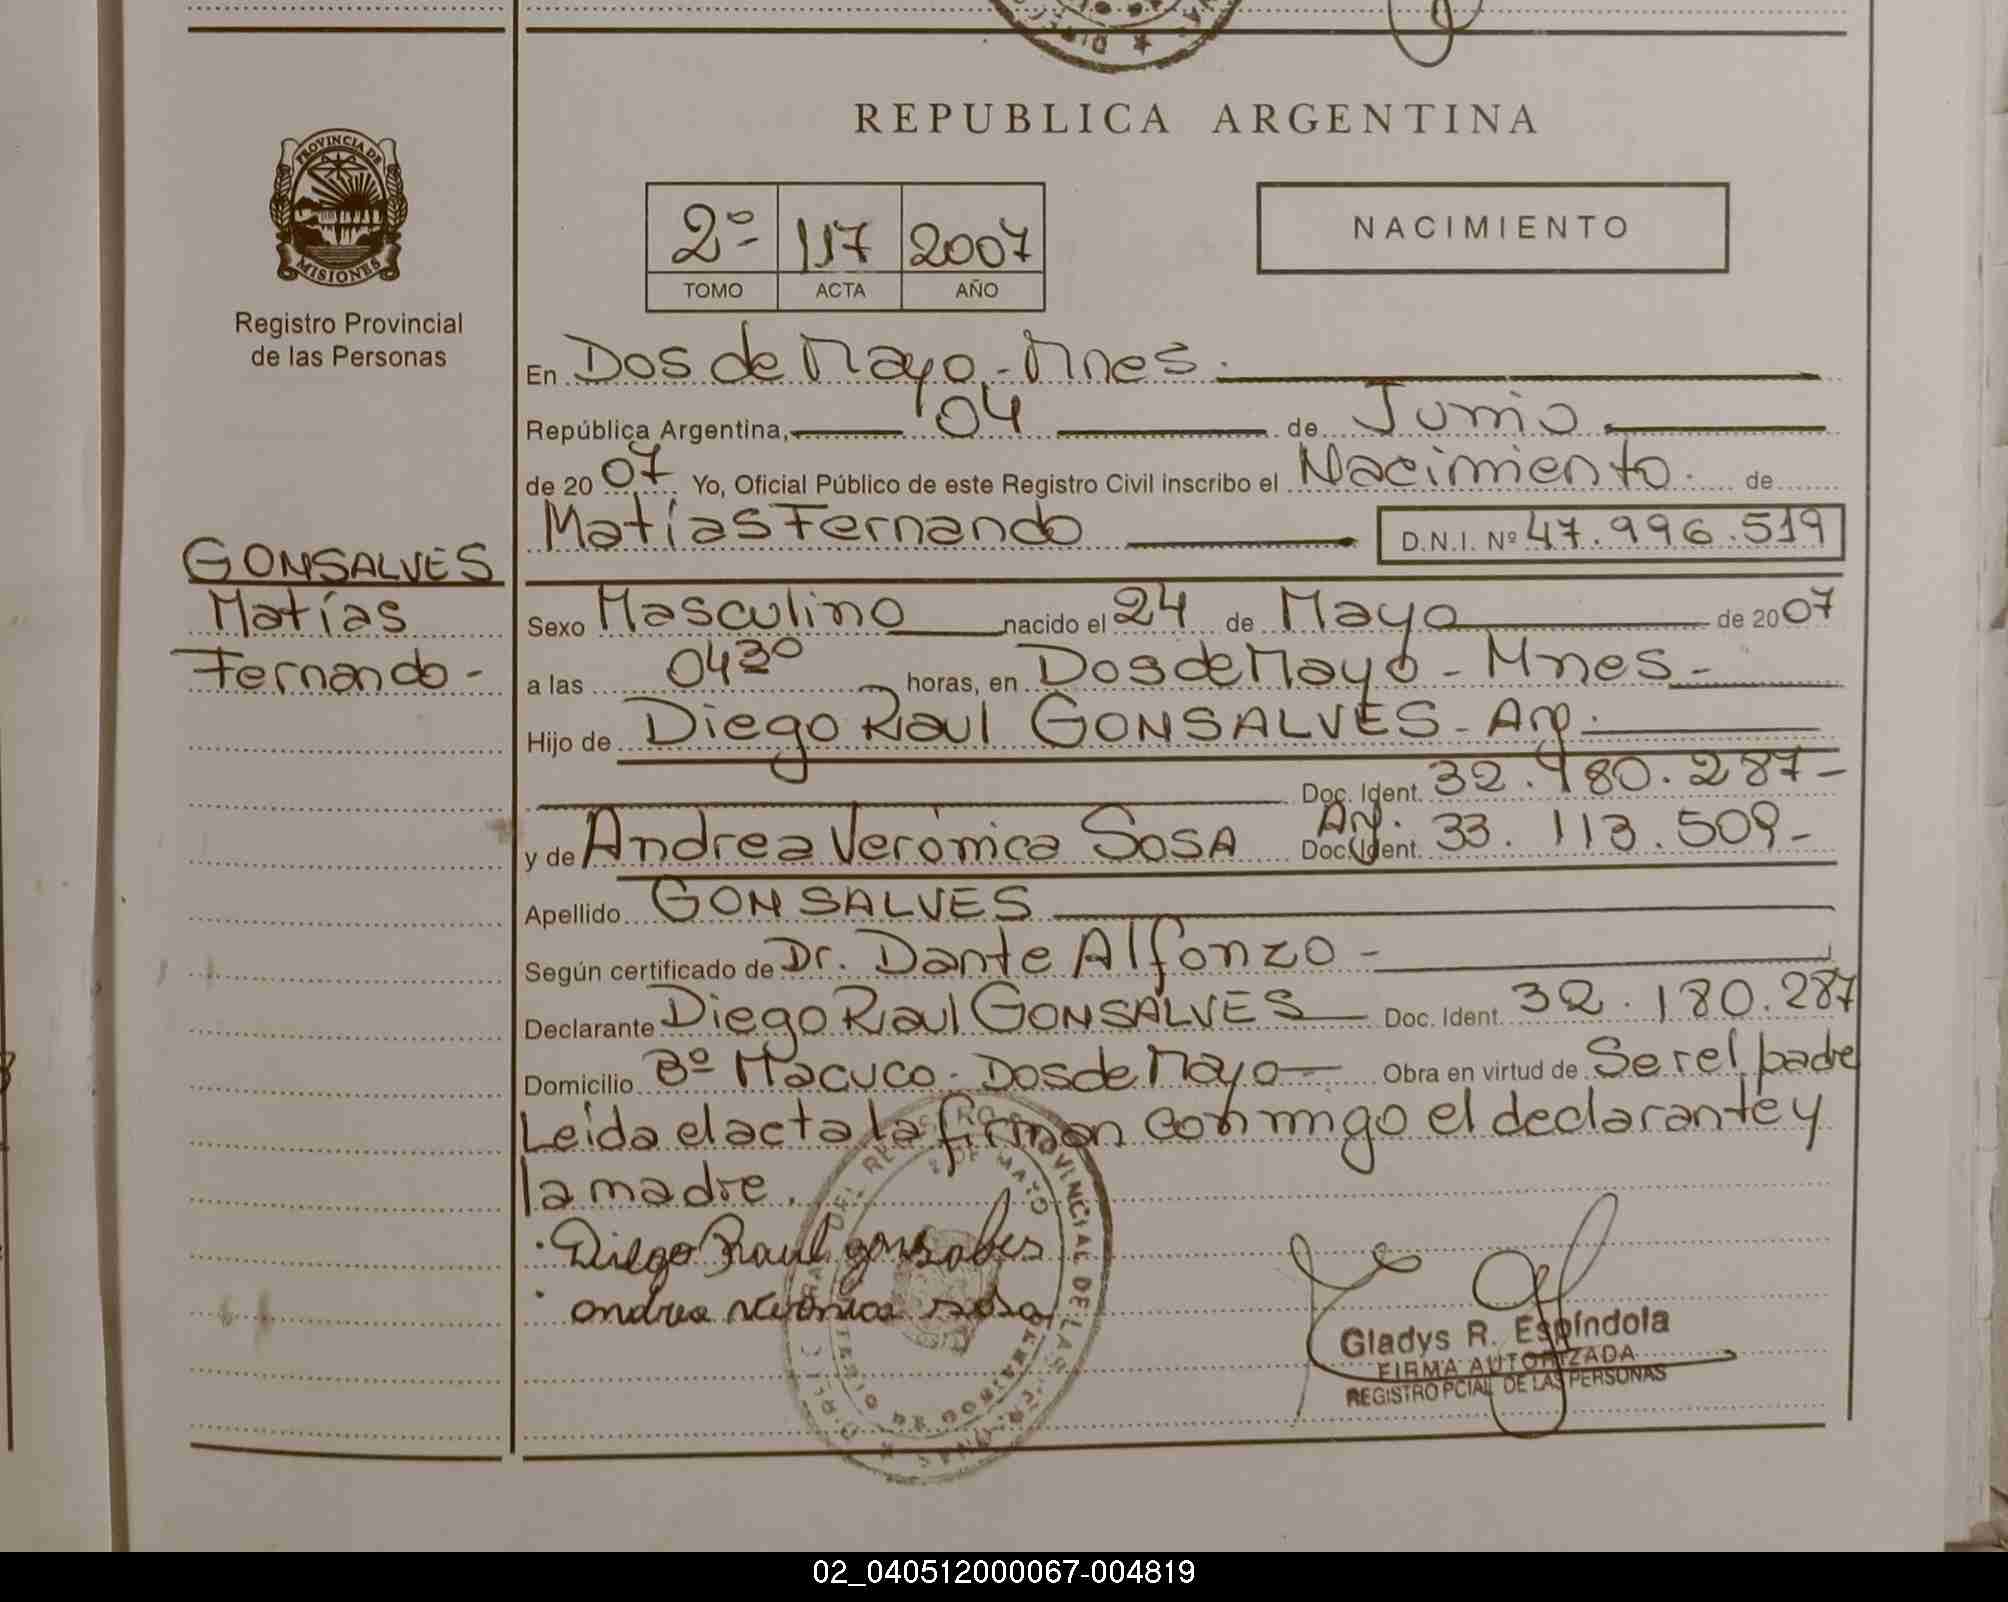 REPUBLICA ARGENTINA
PROVINCIA DE
MISIONES
Registro Provincial
de las Personas
2º 117 2007
TOMO ACTA AÑO
NACIMIENTO
En Dos de Mayo - Mnes.
República Argentina, 04 de Junio
de 2007 Yo, Oficial Público de este Registro Civil inscribo el Nacimiento de
Matías Fernando D.N.I. Nº 47.996.519
GONSALVES
Matías
Fernando -
Sexo Masculino nacido el 24 de Mayo de 2007
a las 0430 horas, en Dos de Mayo - Mnes -
Hijo de Diego Raul GONSALVES - Arg.
Doc. Ident. 32.180.287 -
y de Andrea Verónica SOSA Arg. Doc. Ident. 33.113.509 -
Apellido GONSALVES
Según certificado de Dr. Dante Alfonzo -
Declarante Diego Raul GONSALVES Doc. Ident. 32.180.287
Domicilio Bº Macuco - Dos de Mayo Obra en virtud de Ser el padre
Leída el acta la firman conmigo el declarante y
la madre.
Diego Raul gonsalves
andrea veronica sosa
Gladys R. Espíndola
FIRMA AUTORIZADA
REGISTRO PCIAL DE LAS PERSONAS
02_040512000067-004819